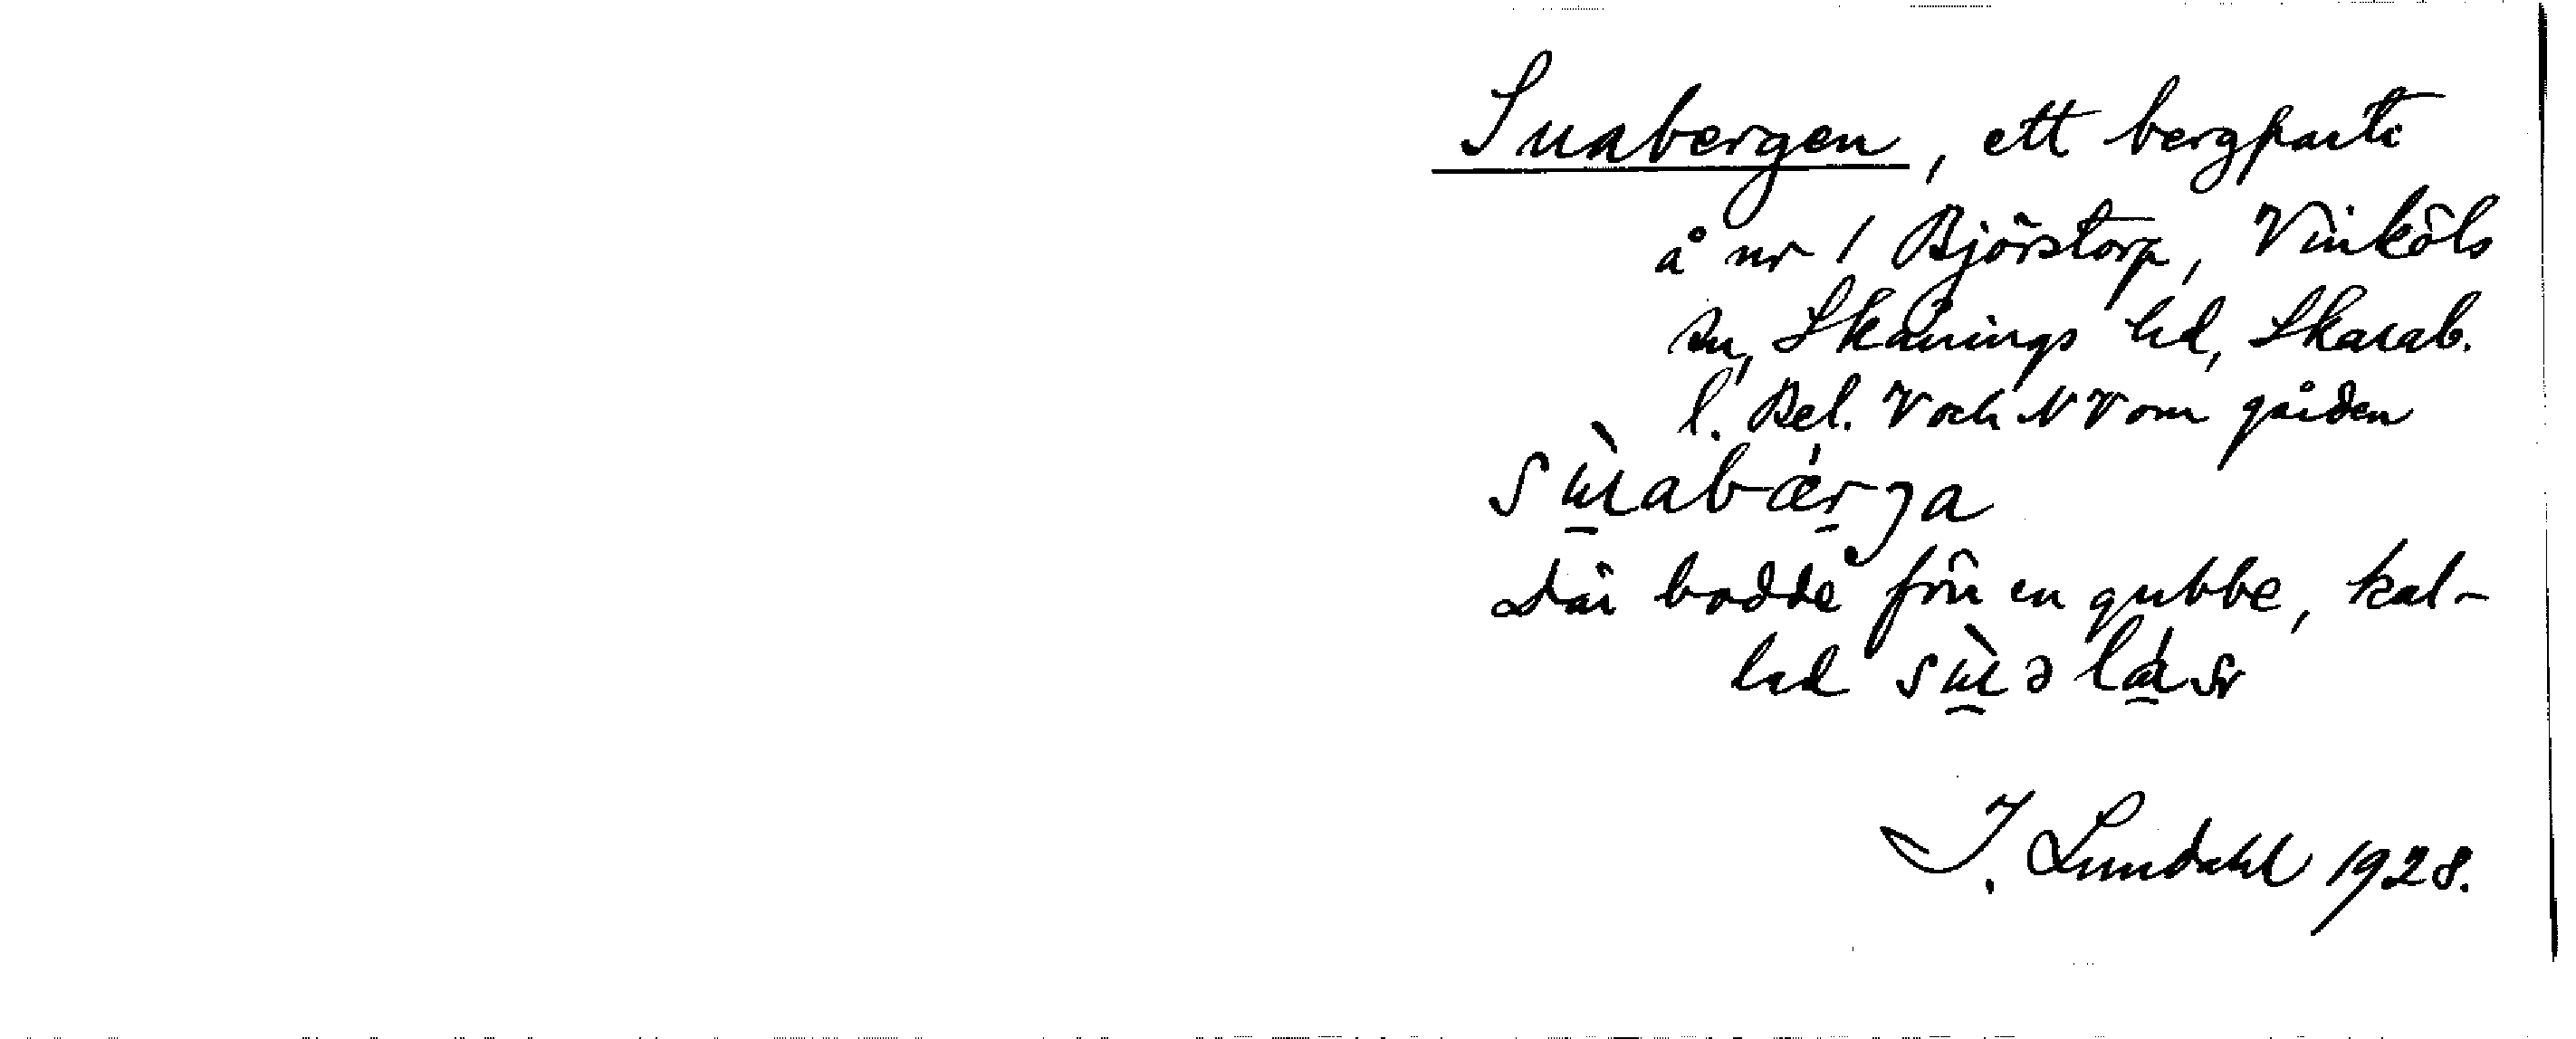 Suabergen, ett bergparti
å nr 1 Björstorp, Vinköls
sn, Skånings hd, Skarab.
l. Bel. V och NV om gården
sɯ̀abæ̀rja
Där bodde förr en gubbe, kal-
lad
I. Lundahl 1928.